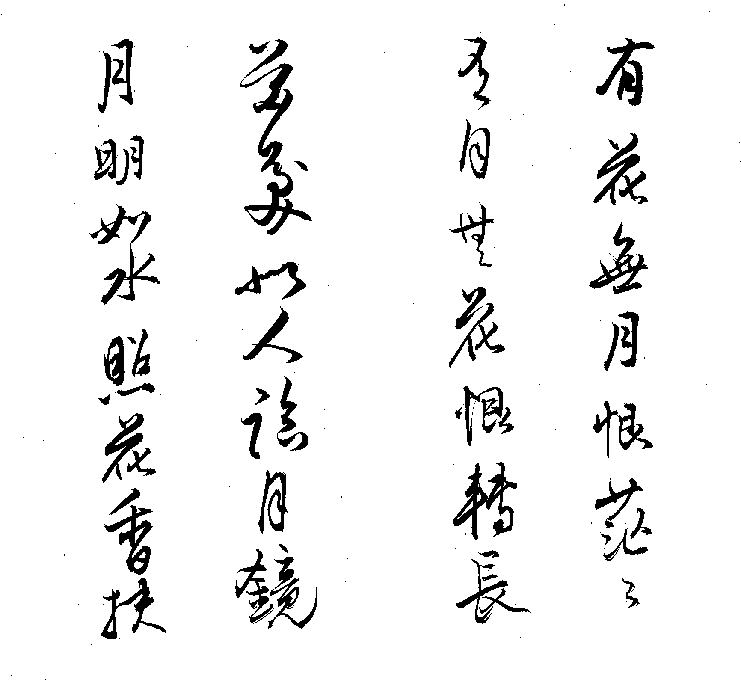 有花無月恨茫々
有月無花恨轉長
花美似人臨月鏡
月明如水照花香扶